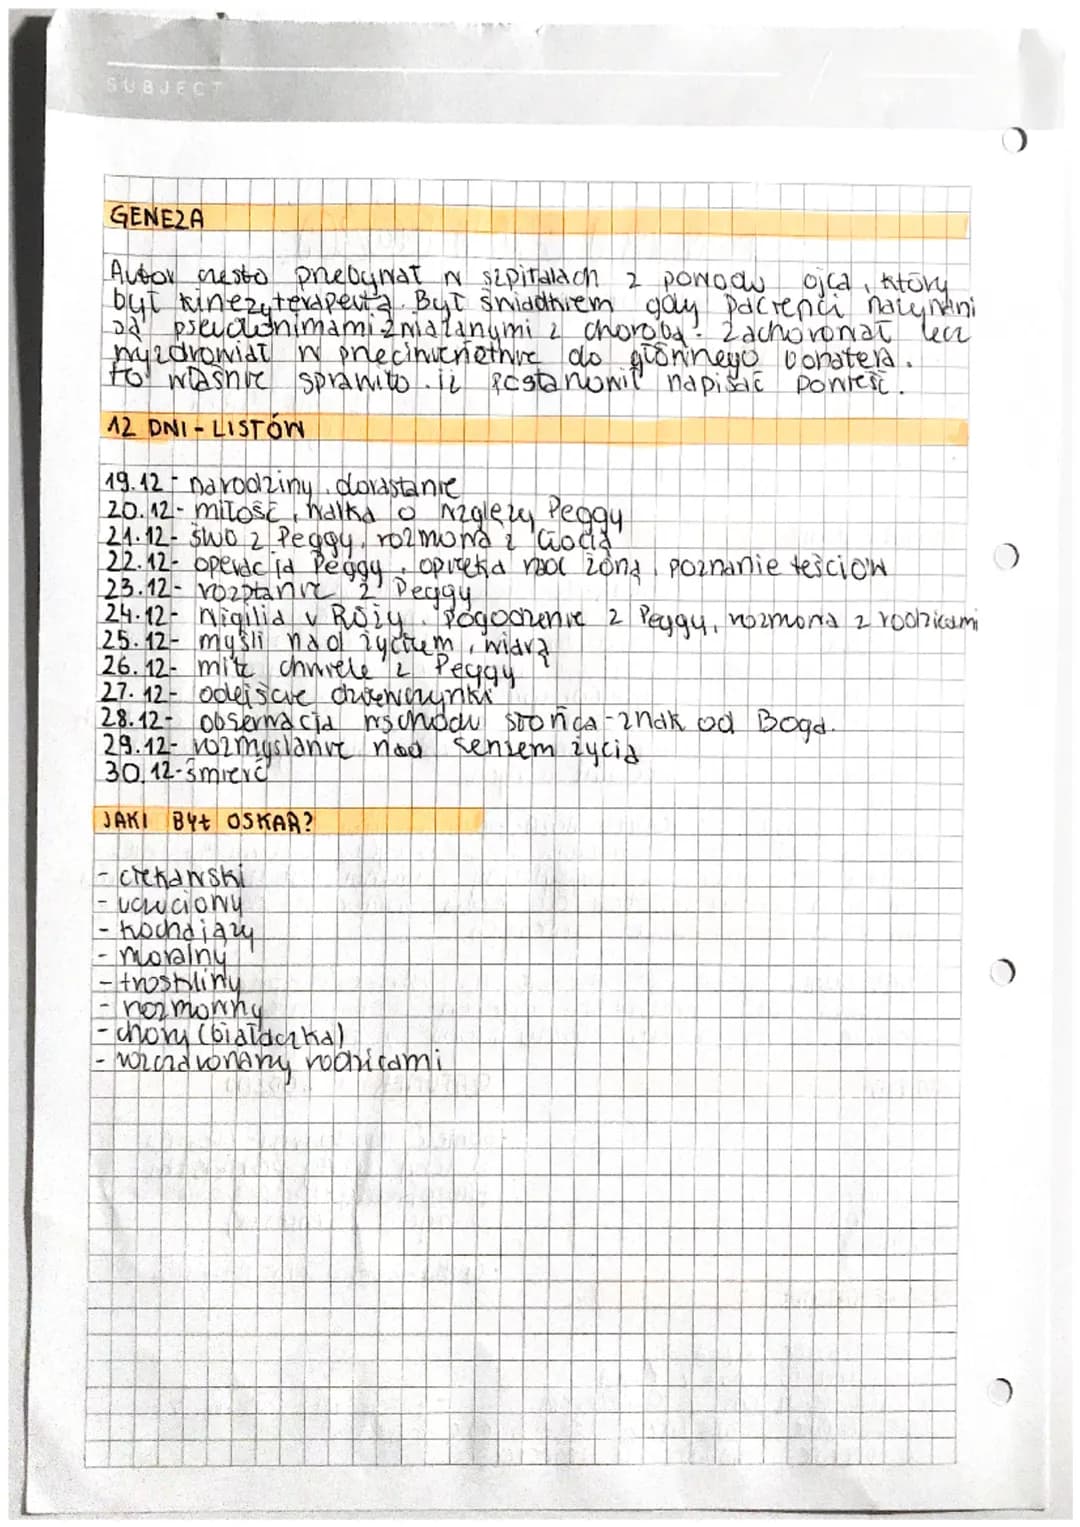 SUBJECT
GENEZA
Autor często przebywał w szpitalach z powodu ojca, który
był kinezyterapeutą. Był świadkiem gdy pacjenci nazywani
są pseudonimami związanymi z chorobą. Zachorował lecz
wyzdrowiał w przeciwieństwie do głównego bohatera.
To właśnie sprawiło iż postanowił napisać powieść.
12 DNI - LISTÓW
19.12 - narodziny, dorastanie
20.12 - miłość, walka o względy Peggy
21.12 - z Peggy, rozmowa z Ciocią
22.12 - operacja Peggy, opieka nad żoną, poznanie teściów
23.12 - rozstanie z Peggy
24.12 - Wigilia u Róży. Pogodzenie z Peggy, rozmowa z rodzicami
25.12 - myśli nad życiem, wiarą
26.12 - miłe chwile z Peggy
27.12 - odejście dziewczynki
28.12 - obserwacja wschodu słońca - znak od Boga.
29.12 - rozmyślanie nad sensem życia
30.12 - śmierć
JAKI BYŁ OSKAR?
- ciekawski
- uczuciowy
- kochający
- moralny
- troskliwy
- rozmowny
- chory (białaczka)
- rozczarowany rodzicami